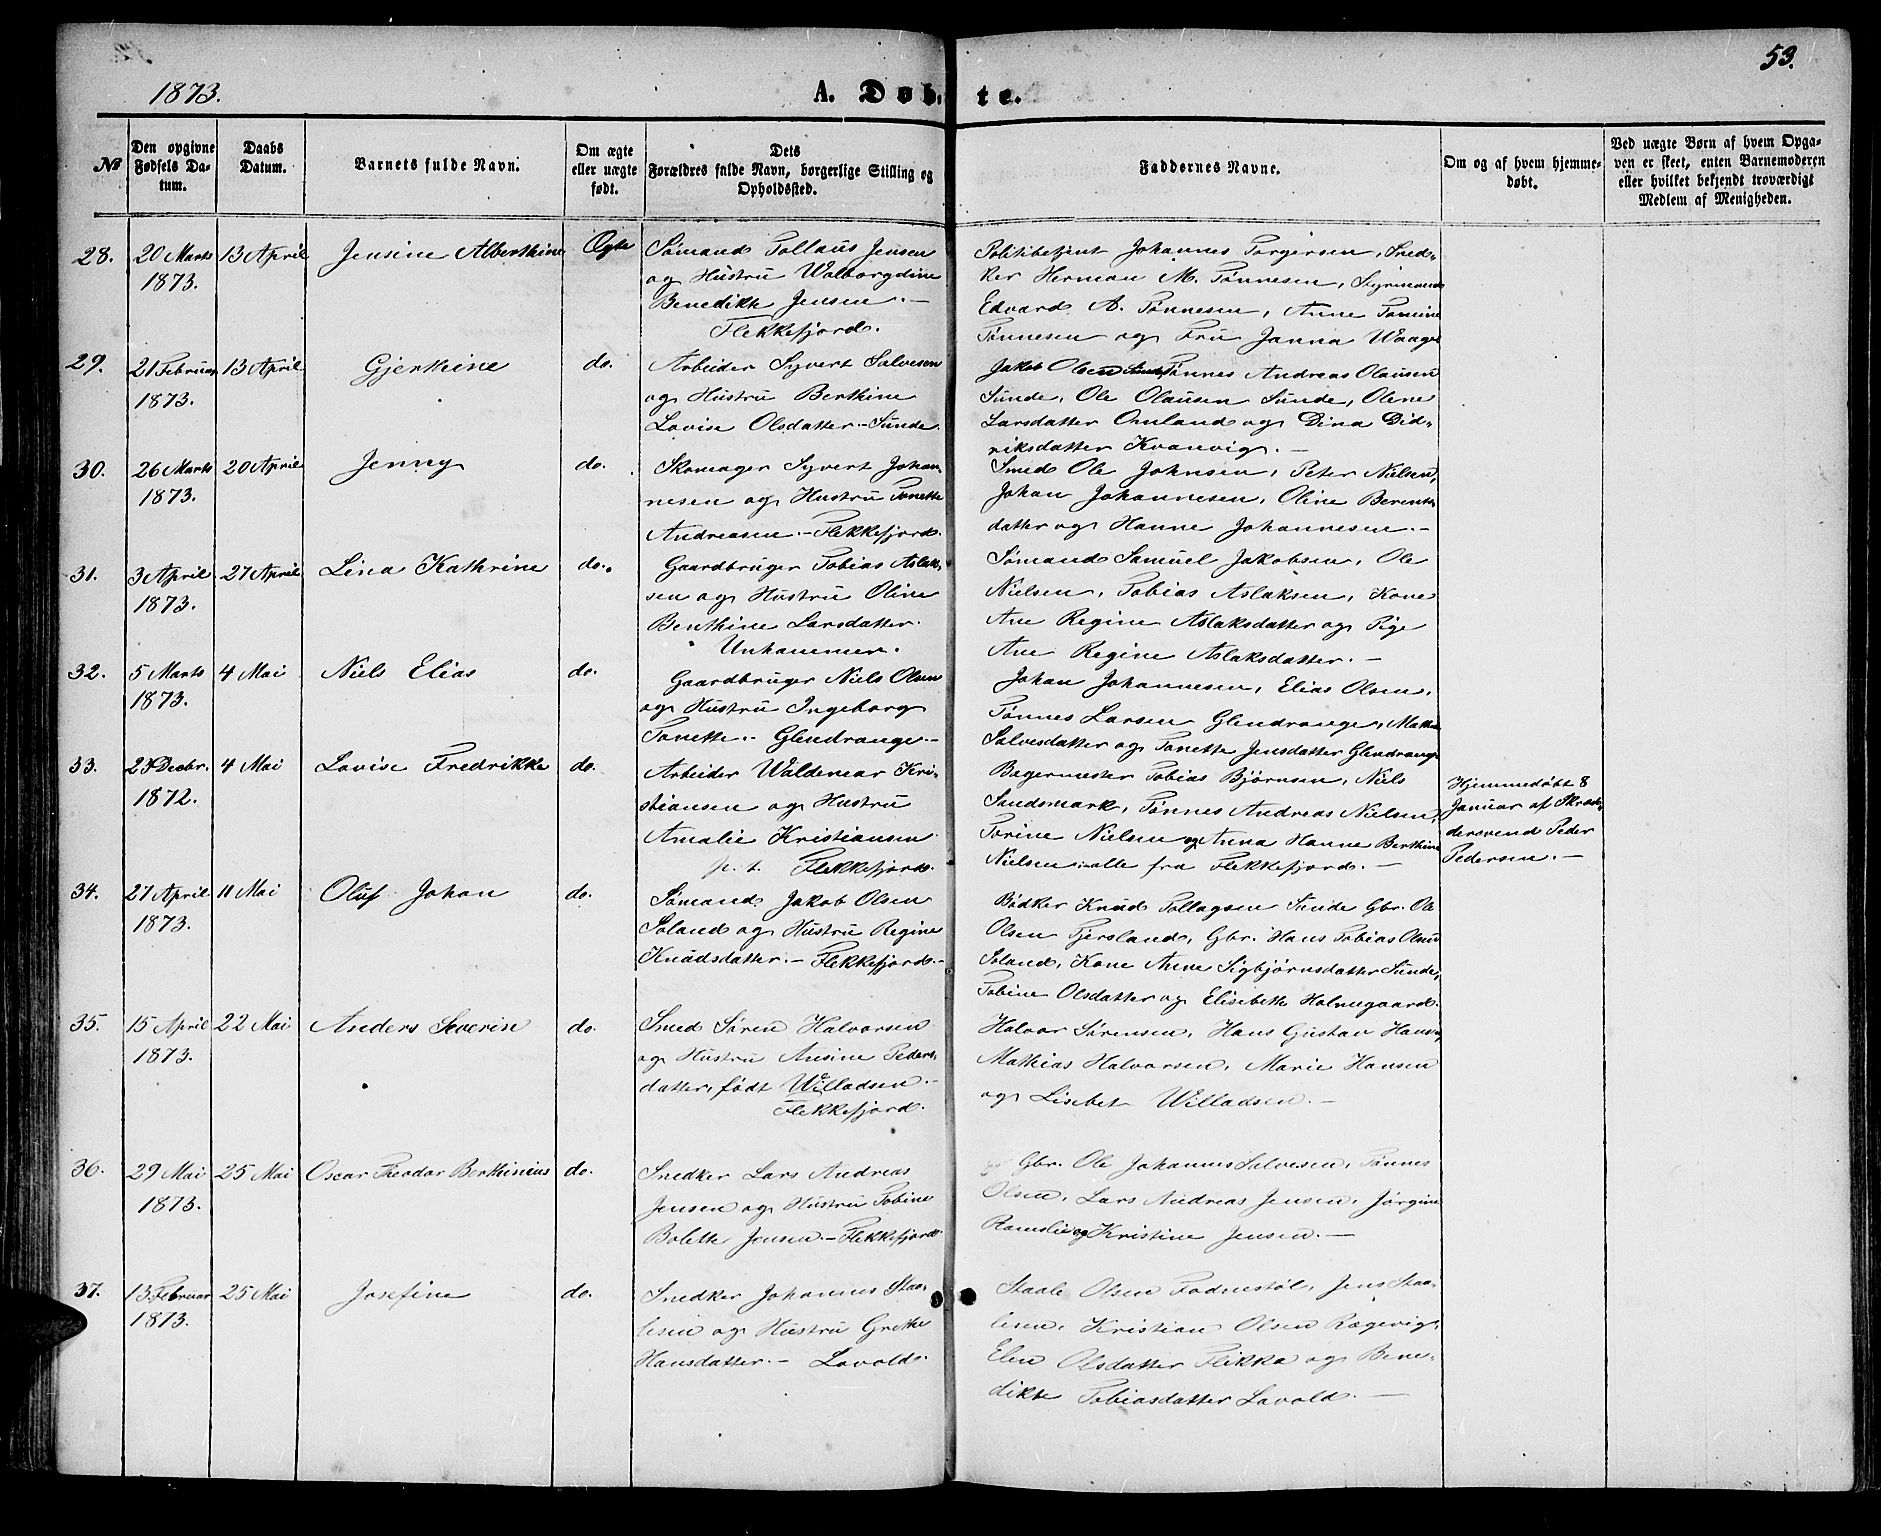 1873.
A. Døbte.
53.
No
Den opgivne Fødsels Datum.
Daabs Datum.
Barnets fulde Navn.
Om ægte eller uægte født.
Dets Forældres fulde Navn, borgerlige Stilling og Opholdssted.
Faddernes Navne.
Om og af hvem hjemmedøbt.
Ved uægte Børn af hvem Opgaven er skeet, enten Barnemoderen eller hvilket bekjendt troværdigt Medlem af Menigheden.
28.
20 Marts
1873.
13 April
Jensine Alberthine
Ægte
Sømand Tollaus Jensen
og Hustru Walborgdine
Benedikte Jensen. –
Flekkefjord.
Politibetjent Johannes Torgersen, Sned-
ker Herman M. Tønnesen, Styrmand
Edvard A. Tønnesen, Anne Tomine
Tønnesen og Fru Janna Waage
29.
21 Februar
1873.
13 April
Gjerthine
do.
Arbeider Syvert Salvesen
og Hustru Berthine
Lovise Olsdatter. – Sunde.
Jakob Olsen Sunde, Tønnes Andreas Olausen
Sunde, Ole Olausen Sunde, Olene
Larsdatter Omland og Dina Did-
riksdatter Kvanvig. –
30.
26 Marts
1873.
20 April
Jenny
do.
Skomager Syvert Johan-
nesen og Hustru Tonette
Andreasen. – Flekkefjord.
Smed Ole Johnsen, Peter Nielsen,
Johan Johannesen, Oline Berents-
datter og Hanne Johannesen. –
31.
3 April
1873.
27 April
Lina Kathrine
do.
Gaardbruger Tobias Aslak-
sen og Hustru Oline
Benthine Larsdatter.
Unhammer.
Sømand Samuel Jakobsen, Ole
Nielsen, Tobias Aslaksen, Kone
Ane Regine Aslaksdatter og Pige
Ane Regine Aslaksdatter. –
32.
5 Marts
1873.
4 Mai
Niels Elias
do.
Gaardbruger Niels Olsen
og Hustru Ingeborg
Tonette. – Glendrange. –
Johan Johannesen, Elias Olsen,
Tønnes Larsen Glendrange, Malene
Salvesdatter og Tonette Jensdatter Glendrange
33.
23 Decbr.
1872.
4 Mai
Lovise Fredrikke
do.
Arbeider Waldemar Kri-
stiansen og Hustru
Amalie Kristiansen
p. t. Flekkefjord.
Bagermester Tobias Bjørnsen, Niels
Sandsmark, Tønnes Andreas Nielsen,
Torine Nielsen og Anna Hanne Berthine
Nielsen, alle fra Flekkefjord. –
Hjemmedøbt 8
Januar af Skræd-
dersvend Peder
Pedersen. –
34.
27 April
1873.
11 Mai
Oluf Johan
do.
Sømand Jakob Olsen
Soland og Hustru Regine
Knudsdatter. – Flekkefjord. –
Bødker Knud Tollagsen Sunde Gbr. Ole
Olsen Fjersland, Gbr. Hans Tobias Olsen
Soland, Kone Anne Sigbjørnsdatter Sunde,
Tobine Olsdatter og Elisebette Holmegaard.
35.
15 April
1873.
22 Mai
Anders Severin
do.
Smed Søren Halvorsen
og Hustru Ansine Peders-
datter, født Willadsen. –
Flekkefjord.
Halvor Sørensen, Hans Gustav Hansen,
Mathias Halvorsen, Marie Hansen
og Lisebet Willadsen. –
36.
29 Mai
1873.
25 Mai
Oscar Theodor Berthinius
do.
Snedker Lars Andreas
Jensen og Hustru Tobine
Bolette Jensen. – Flekkefjord.
Gbr. Ole Johannes Salvesen, Tønnes
Olsen, Lars Andreas Jensen, Jørgine
Ramslie og Kristine Jensen. –
37.
13 Februar
1873.
25 Mai
Josefine
do.
Snedker Johannes Staa-
lesen og Hustru Grethe
Hansdatter. – Lavold.
Staale Olsen Fodnestøl, Jens Staa-
lesen, Kristian Olsen Rægevig,
Elen Olsdatter Flikka og Bene-
dikte Tobiasdatter Lavold. –